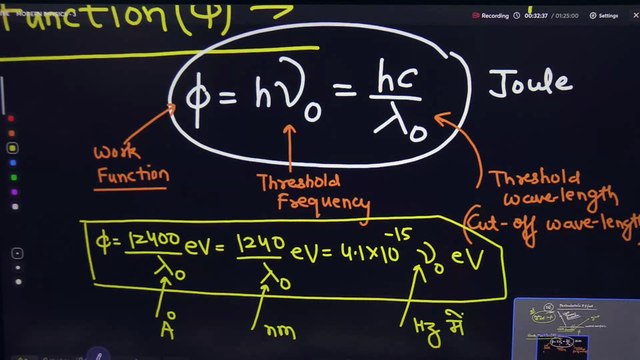 MODERN PHYSICS-3
Recording 00:32:37 / 01:25:00 Settings
Function(ϕ) →
ϕ = hν₀ = hc/λ₀ Joule
Work Function
Threshold Frequency
Threshold wave-length
(Cut-off wave-length
ϕ = 12400/λ₀ eV = 1240/λ₀ eV = 4.1×10⁻¹⁵ ν₀ eV
Å
nm
Hz में